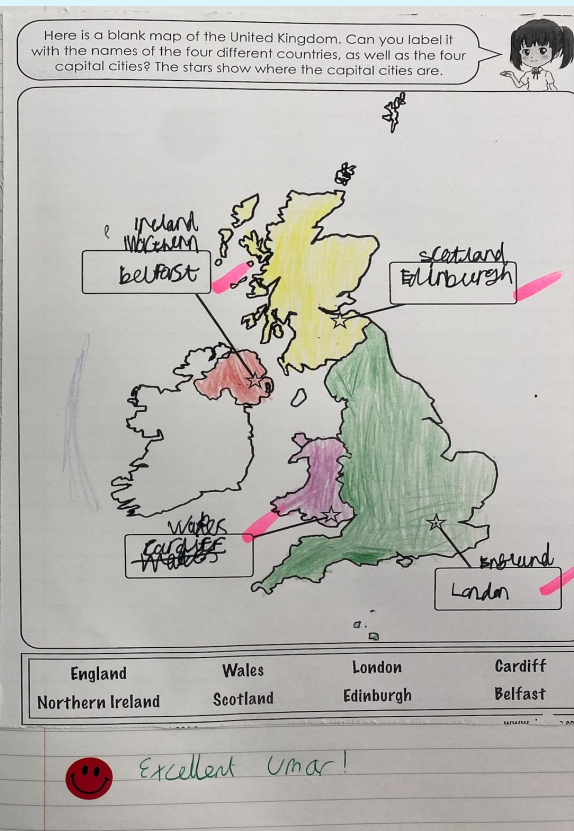 Here is a blank map of the United Kingdom. Can you label it
with the names of the four different countries, as well as the four
capital cities? The stars show where the capital cities are.
ireland
Northern
belfast
scotland
Edinburgh
Wales
Cardiff
Wales
England
London
England Wales London Cardiff
Northern Ireland Scotland Edinburgh Belfast
Excellent Umar!